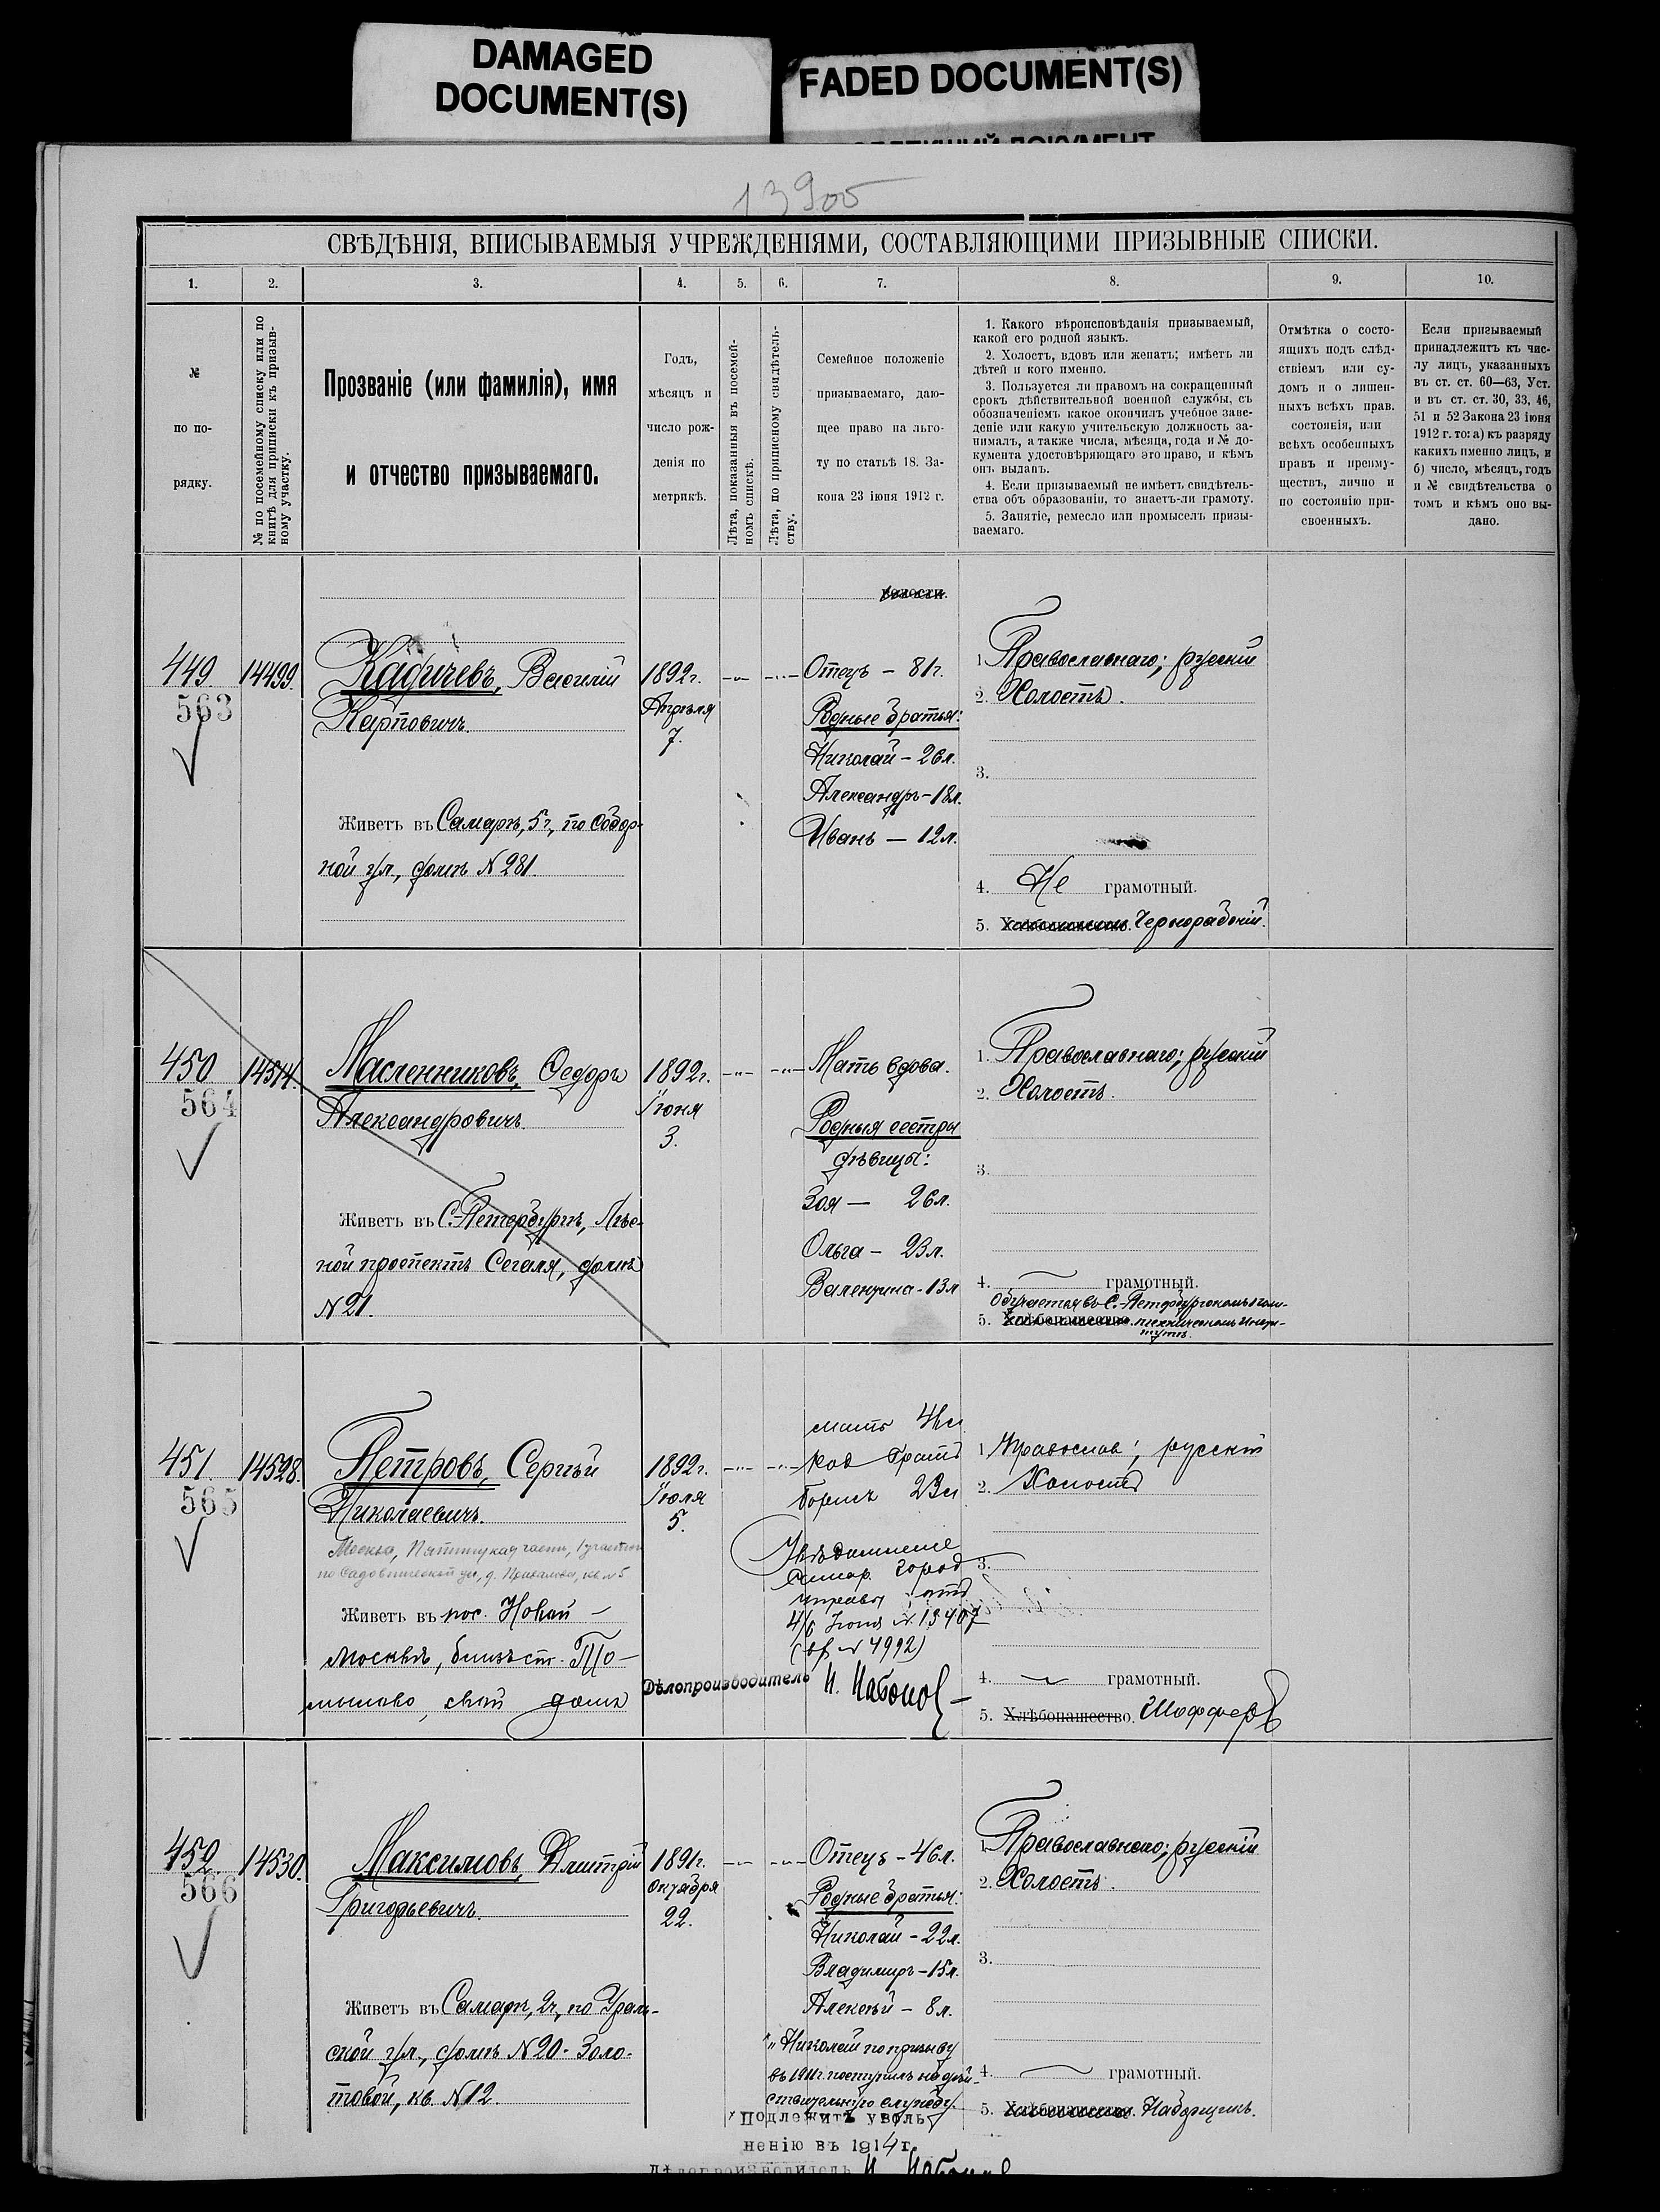 DAMAGED
DOCUMENT(S)
FADED DOCUMENT(S)
13905
СВѢДѢНІЯ, ВПИСЫВАЕМЫЯ УЧРЕЖДЕНІЯМИ, СОСТАВЛЯЮЩИМИ ПРИЗЫВНЫЕ СПИСКИ.
1.
2.
3.
4.
5.
6.
7.
8.
9.
10.
№
по по-
рядку.
№ по посемейному списку или по
книгѣ для приписки къ призыв-
ному участку.
Прозваніе (или фамилія), имя
и отчество призываемаго.
Годъ,
мѣсяцъ и
число рож-
денія по
метрикѣ.
Лѣта, показанныя въ посемей-
номъ спискѣ.
Лѣта, по приписному свидѣтель-
ству.
Семейное положеніе
призываемаго, даю-
щее право на льго-
ту по статьѣ 18. За-
кона 23 іюня 1912 г.
1. Какого вѣроисповѣданія призываемый,
какой его родной языкъ.
2. Холостъ, вдовъ или женатъ; имѣетъ ли
дѣтей и кого именно.
3. Пользуется ли правомъ на сокращенный
срокъ дѣйствительной военной службы, съ
обозначеніемъ какое окончилъ учебное заве-
деніе или какую учительскую должность за-
нималъ, а также числа, мѣсяца, года и № до-
кумента удостовѣряющаго это право, и кѣмъ
онъ выданъ.
4. Если призываемый не имѣетъ свидѣтель-
ства объ образованіи, то знаетъ-ли грамоту.
5. Занятіе, ремесло или промыселъ призы-
ваемаго.
Отмѣтка о состо-
ящихъ подъ слѣд-
ствіемъ или су-
домъ и о лишен-
ныхъ всѣхъ прав.
состоянія, или
всѣхъ особенныхъ
правъ и преиму-
ществъ, лично и
по состоянію при-
своенныхъ.
Если призываемый
принадлежитъ къ чис-
лу лицъ, указанныхъ
въ ст. ст. 60—63, Уст.
и въ ст. ст. 30, 33, 46,
51 и 52 Закона 23 іюня
1912 г. то: а) къ разряду
какихъ именно лицъ, и
б) число, мѣсяцъ, годъ
и № свидѣтельства о
томъ и кѣмъ оно вы-
дано.
волости.
449.
563
14499.
Кадичевъ, Василій
Карповичъ.
Живетъ въ Самарѣ, 5ч., по Собор-
ной ул., домъ № 281.
1892г.
Апрѣля
7.
Отецъ – 81г.
Родные братья:
Николай – 26л.
Александръ – 18л.
Иванъ – 12л.
1. Православнаго; русскій
2. Холостъ.
3.
4. Не грамотный.
5. Хлѣбопашество. Чернорабочій.
450
564
14514.
Масленниковъ, Ѳедоръ
Александровичъ.
Живетъ въ С.-Петербургѣ, Лѣс-
ной проспектъ Сегаля, домъ
№ 21.
1892г.
Іюня
3.
Мать вдова.
Родныя сестры
дѣвицы:
Зоя — 26л.
Ольга – 23л.
Валентина – 13л
1. Православнаго; русскій
2. Холостъ.
3.
4. грамотный.
Обучается въ С.-Петербургскомъ поли-
5. Хлѣбопашество. техническомъ Инсти-
тутѣ.
451.
565
14528.
Петровъ, Сергѣй
Николаевичъ.
Москва, Пятницкая части, 1 участка
Живетъ въ пос. Новой –
Москвѣ, близъ ст. То-
мылово, свой домъ
1892г.
Іюля
5.
мать
род братъ
Борисъ 23л
Увѣдомленіе
Самар. город
управы отъ
4/6 Іюня № 13407
(вх № 4992)
Дѣлопроизводитель
1. Православ; русскій
2. Холостъ
3.
4. грамотный.
5. Хлѣбопашество. Шофферъ
452.
566
14530.
Максимовъ, Дмитрій
Григорьевичъ.
Живетъ въ Самарѣ, 2ч., по Ураль-
ской ул., домъ № 20 - Золо-
товой, кв. № 12.
1891г.
Октября
22.
Отецъ – 46л.
Родные братья:
Николай – 22л.
Владимиръ – 15л.
Алексѣй – 8л.
"Николай по призыву
въ 1911г. поступилъ на дѣй-
ствительную службу.
Подлежитъ уволь-
ненію въ 1914 г.
Дѣлопроизводитель
1. Православнаго; русскій
2. Холостъ.
3.
4. грамотный.
5. Хлѣбопашество. Наборщикъ.